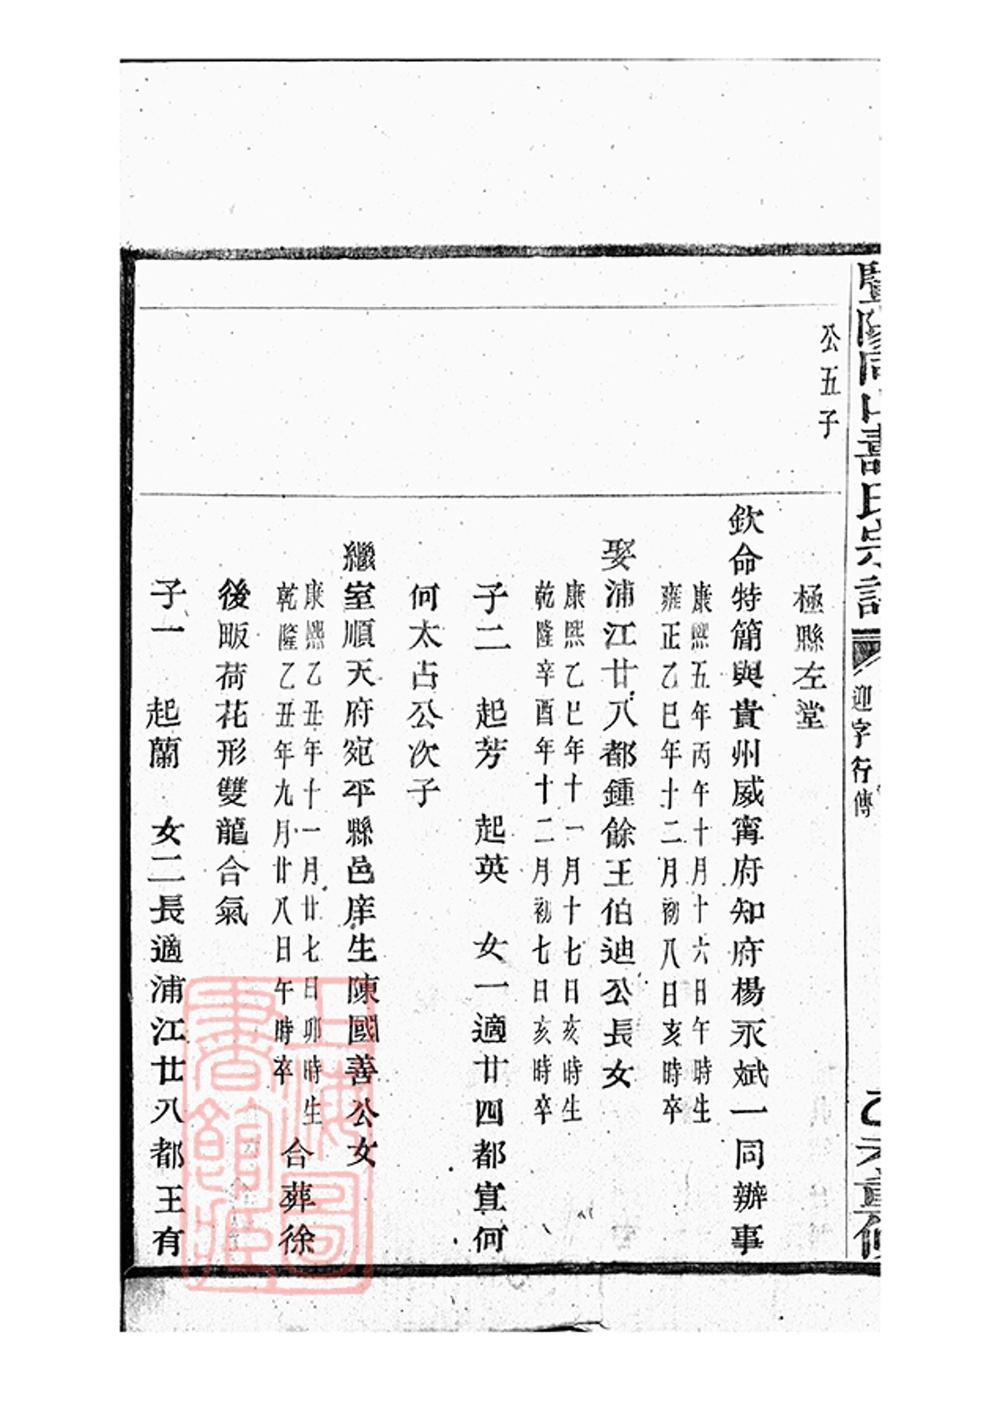 暨陽同山壽氏宗譜
迎字行傳
乙亥重修
公五子
極縣左堂
欽命特簡與貴州威寧府知府楊永斌一同辦事
康熙五年丙午十月十六日午時生
雍正乙巳年十二月初八日亥時卒
娶浦江廿八都鍾餘王伯迪公長女
康熙乙巳年十一月十七日亥時生
乾隆辛酉年十二月初七日亥時卒
子二 起芳 起英 女一適廿四都宣何
何太占公次子
繼室順天府宛平縣邑庠生陳國善公女
康熙乙丑年十一月廿七日卯時生
乾隆乙丑年九月廿八日午時卒
合葬徐
後畈荷花形雙龍合氣
子一 起蘭 女二長適浦江廿八都王有
上海圖書館藏